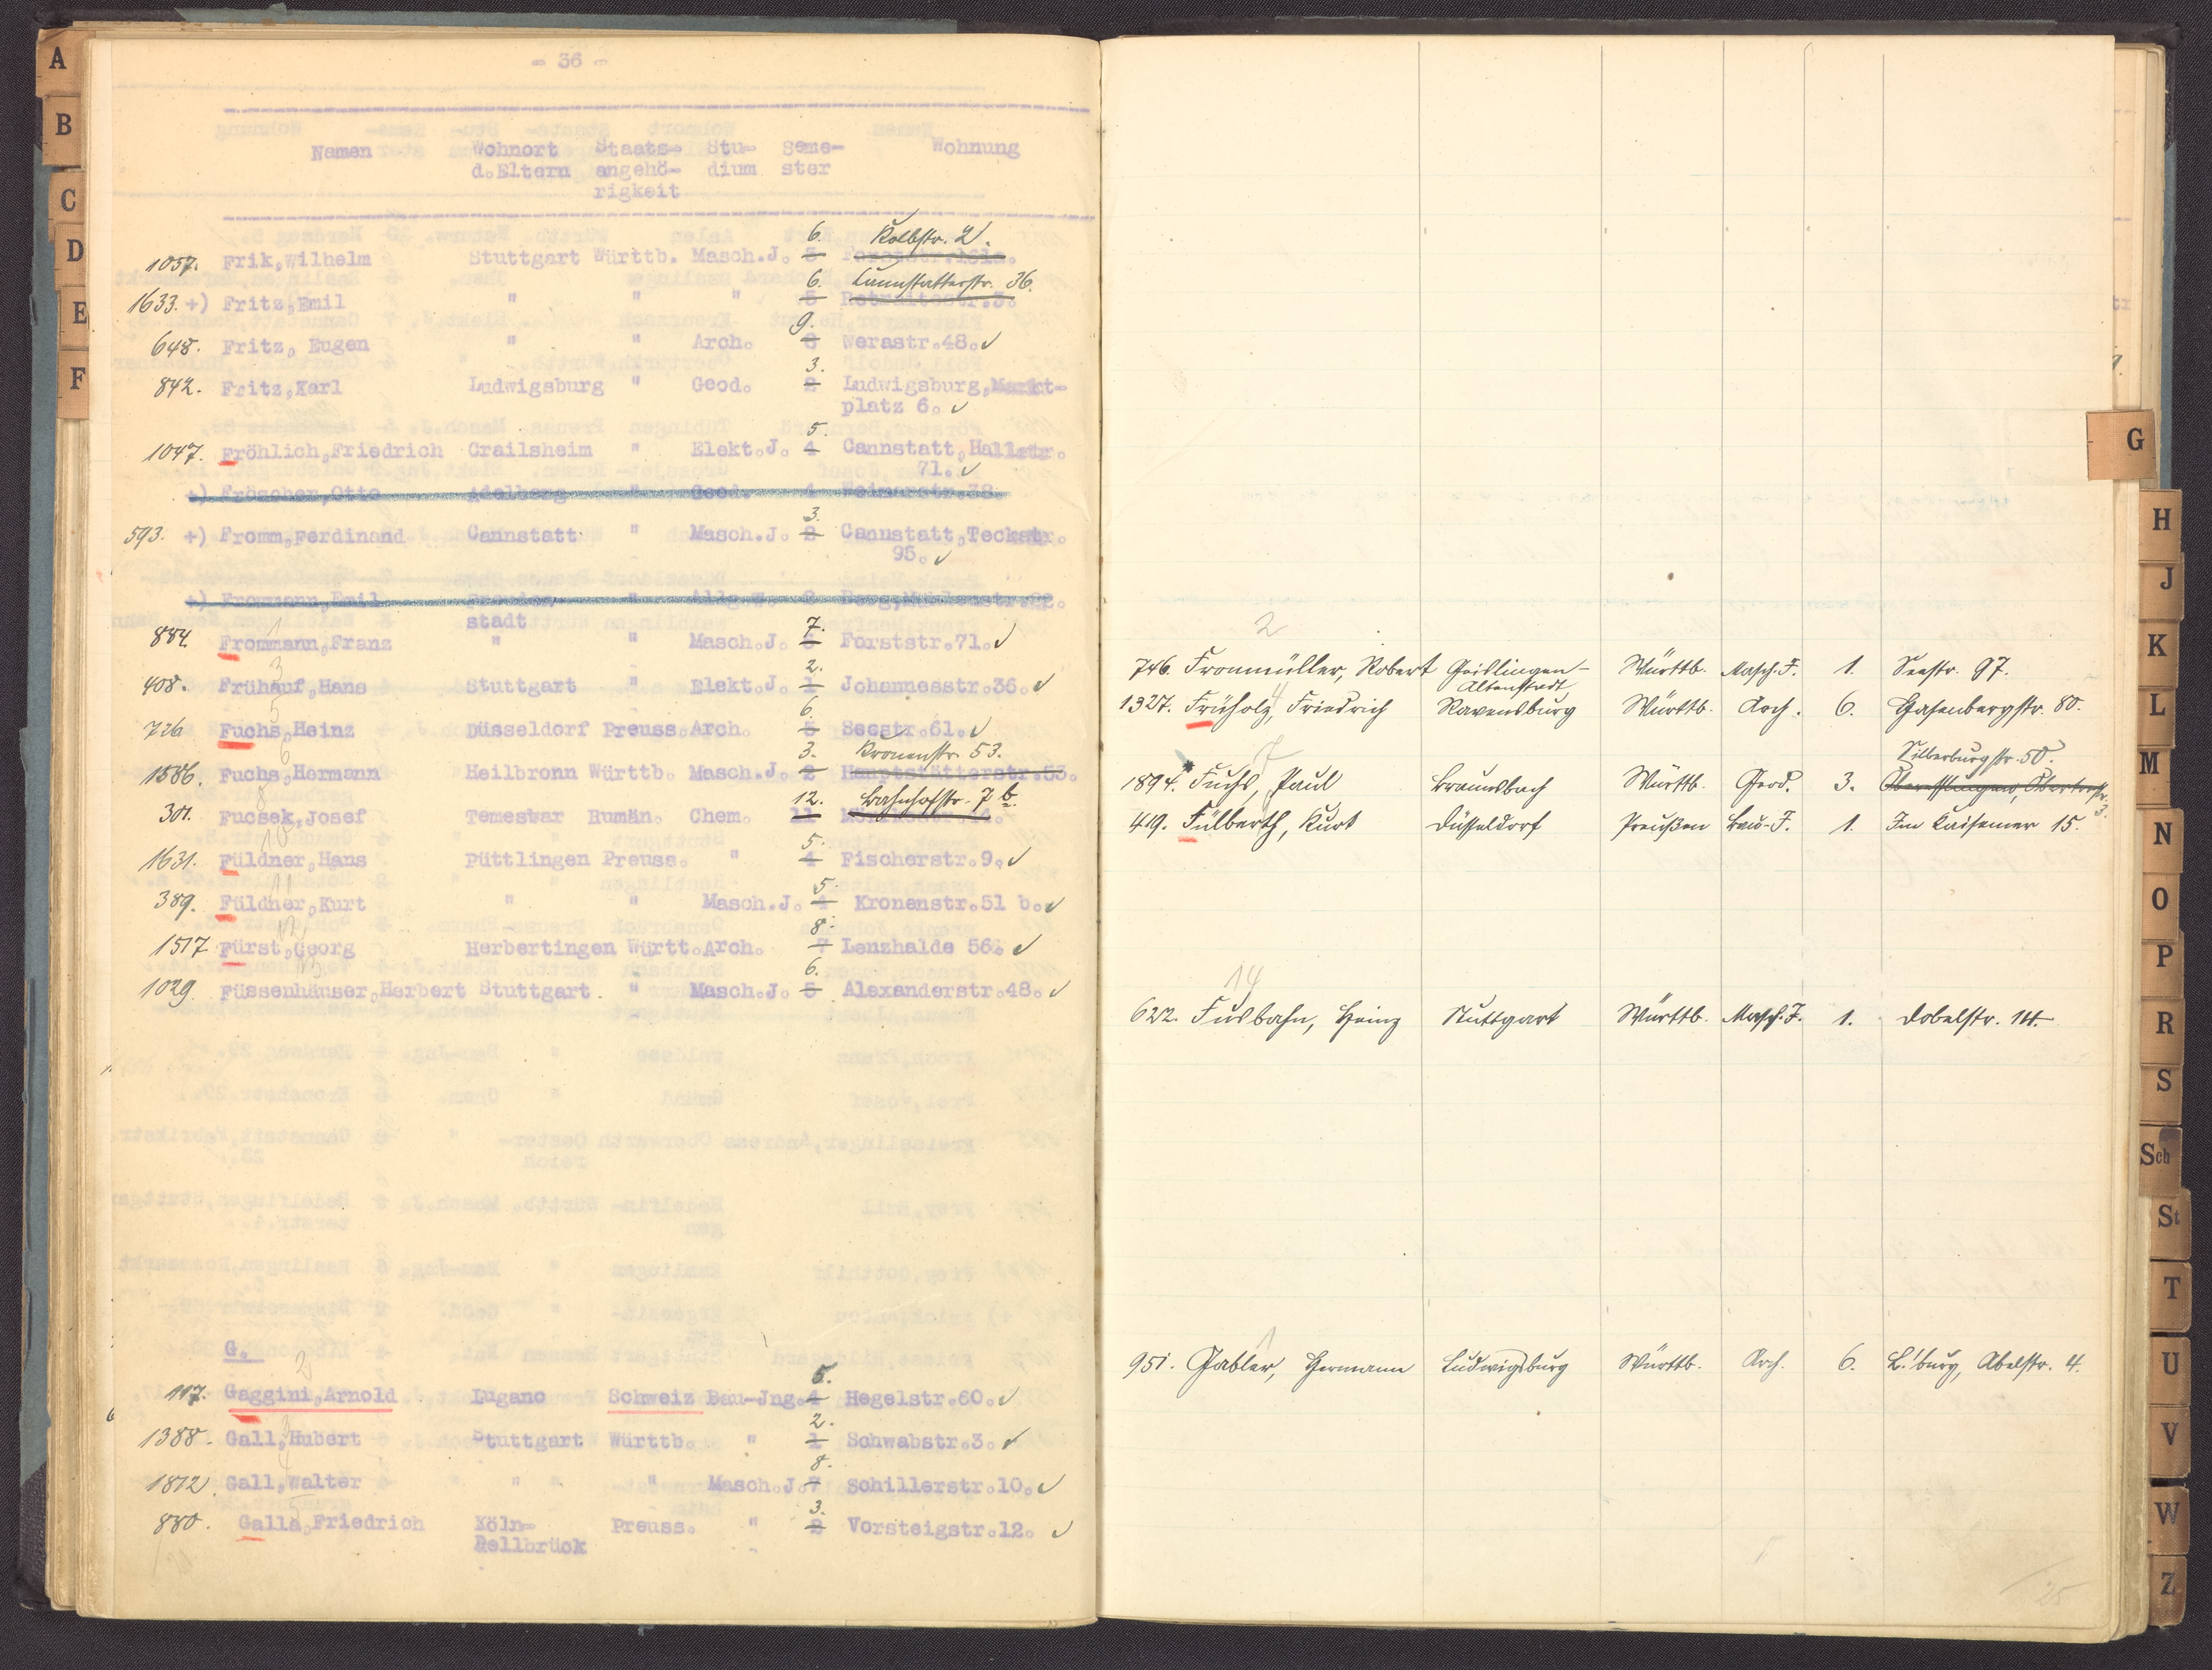 - 36 -
Namen Wohnort Staats- Stu- Seme- Wohnung
d.Eltern angehö- dium ster
rigkeit
6. Kolbstr. 2.
1057. Frik,Wilhelm Stuttgart Württb. Masch.J. 5 Forststr.161a.
6. Cannstatterstr. 36.
1633. +) Fritz,Emil " " " 5
9.
648. Fritz, Eugen " " Arch. 8 Werastr.48.
3.
842. Fritz,Karl Ludwigsburg " Geod. 2 Ludwigsburg,Markt-
platz 6.
5.
1047. Fröhlich,Friedrich Crailsheim " Elekt.J. 4 Cannstatt,Hallstr.
71.
+) Fröscher,Otto Adelberg " Geod. 4 Weimarstr.38.
3.
593. +) Fromm,Ferdinand Cannstatt " Masch.J. 2 Cannstatt,Teckstr.
95.
+) Frommann,Emil " 2
stadt
7.
884. Frommann,Franz " " Masch.J. 6 Forststr.71.
2.
408. Frühauf,Hans Stuttgart " Elekt.J. 1 Johannesstr.36.
6.
726 Fuchs,Heinz Düsseldorf Preuss.Arch. 5 Seestr.61.
3. Kronenstr. 53.
1586. Fuchs,Hermann Heilbronn Württb. Masch.J. 2 Hauptstätterstr.53.
12. Bahnhofstr. 7 b.
301. Fucsek,Josef Temeswar Rumän. Chem. 11
5.
1631. Füldner,Hans Püttlingen Preuss. " 4 Fischerstr.9.
5.
389. Füldner,Kurt " " Masch.J. 4 Kronenstr.51 b.
8.
1517 Fürst,Georg Herbertingen Württ.Arch. 7 Lenzhalde 56.
6.
1029. Füssenhäuser,Herbert Stuttgart " Masch.J. 5 Alexanderstr.48.
G.
2
5.
117. Gaggini,Arnold Lugano Schweiz Bau-Jng.4 Hegelstr.60.
2.
1388. Gall,Hubert Stuttgart Württb. " 1 Schwabstr.3.
8.
1812. Gall,Walter " " " Masch.J.7 Schillerstr.10.
3.
880. Galla,Friedrich Köln- Preuss. " 2 Vorsteigstr.12.
Dellbrück
2
746. Fronmüller, Robert Geislingen- Württb. Masch.J. 1. Seestr. 97.
Altenstadt
4
1327. Früholz, Friedrich Ravensburg Württb. Arch. 6. Hasenbergstr. 80.
7
Silberburgstr. 50.
1894. Fuchs, Paul Braunsbach Württb. Geod. 3. Oberesslingen,
3.
419. Fülberth, Kurt Düsseldorf Preußen Bau-J. 1. Im Kaisemer 15.
14
622. Fusbahn, Heinz Stuttgart Württb. Masch.J. 1. Dobelstr. 14.
1
951. Gabler, Hermann Ludwigsburg Württb. Arch. 6. L.'burg, Abelstr. 4.
25
A
B
C
D
E
F
G
H
J
K
L
M
N
O
P
R
S
Sch
St
T
U
V
W
Z